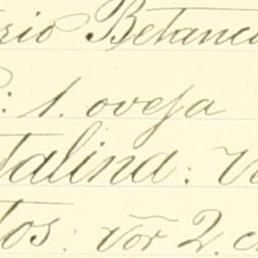 rio Betanc
: 1. oveja
talina: V
tos: vór 2. c